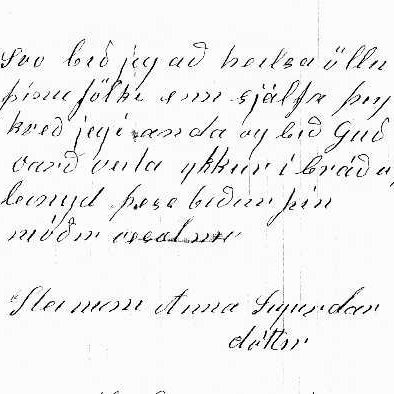 Svo bið jeg að heilsa öllu
þínu fólki enn sjálfa þig
kveð jeg í anda og bið Guð
varðveita ykkur í bráð o
leingd þess biður þín
móðir
Steinunn Anna Sigurdar
dóttir